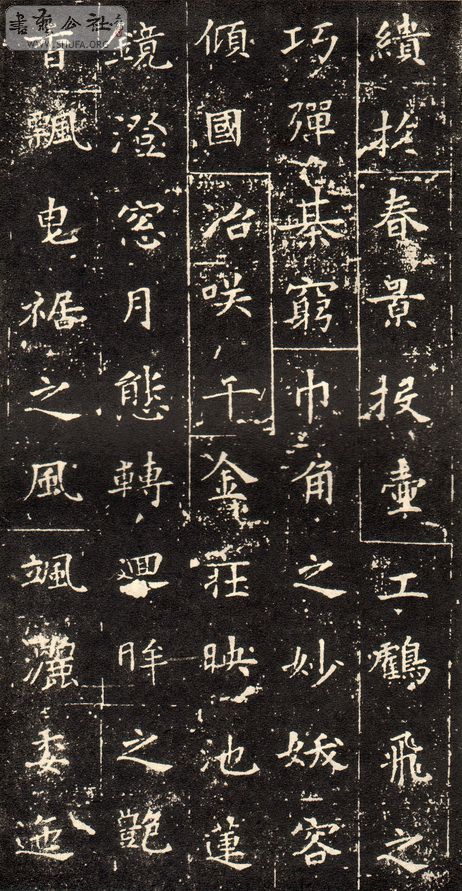 繢於春景投壺工鶴飛之
巧彈棊窮巾角之妙妖容
傾國冶咲千金粧映池蓮
鏡澄窓月態轉廻眸之艷
香飄曳裾之風颯灑委迤
書藝公社
WWW.SHUFA.ORG